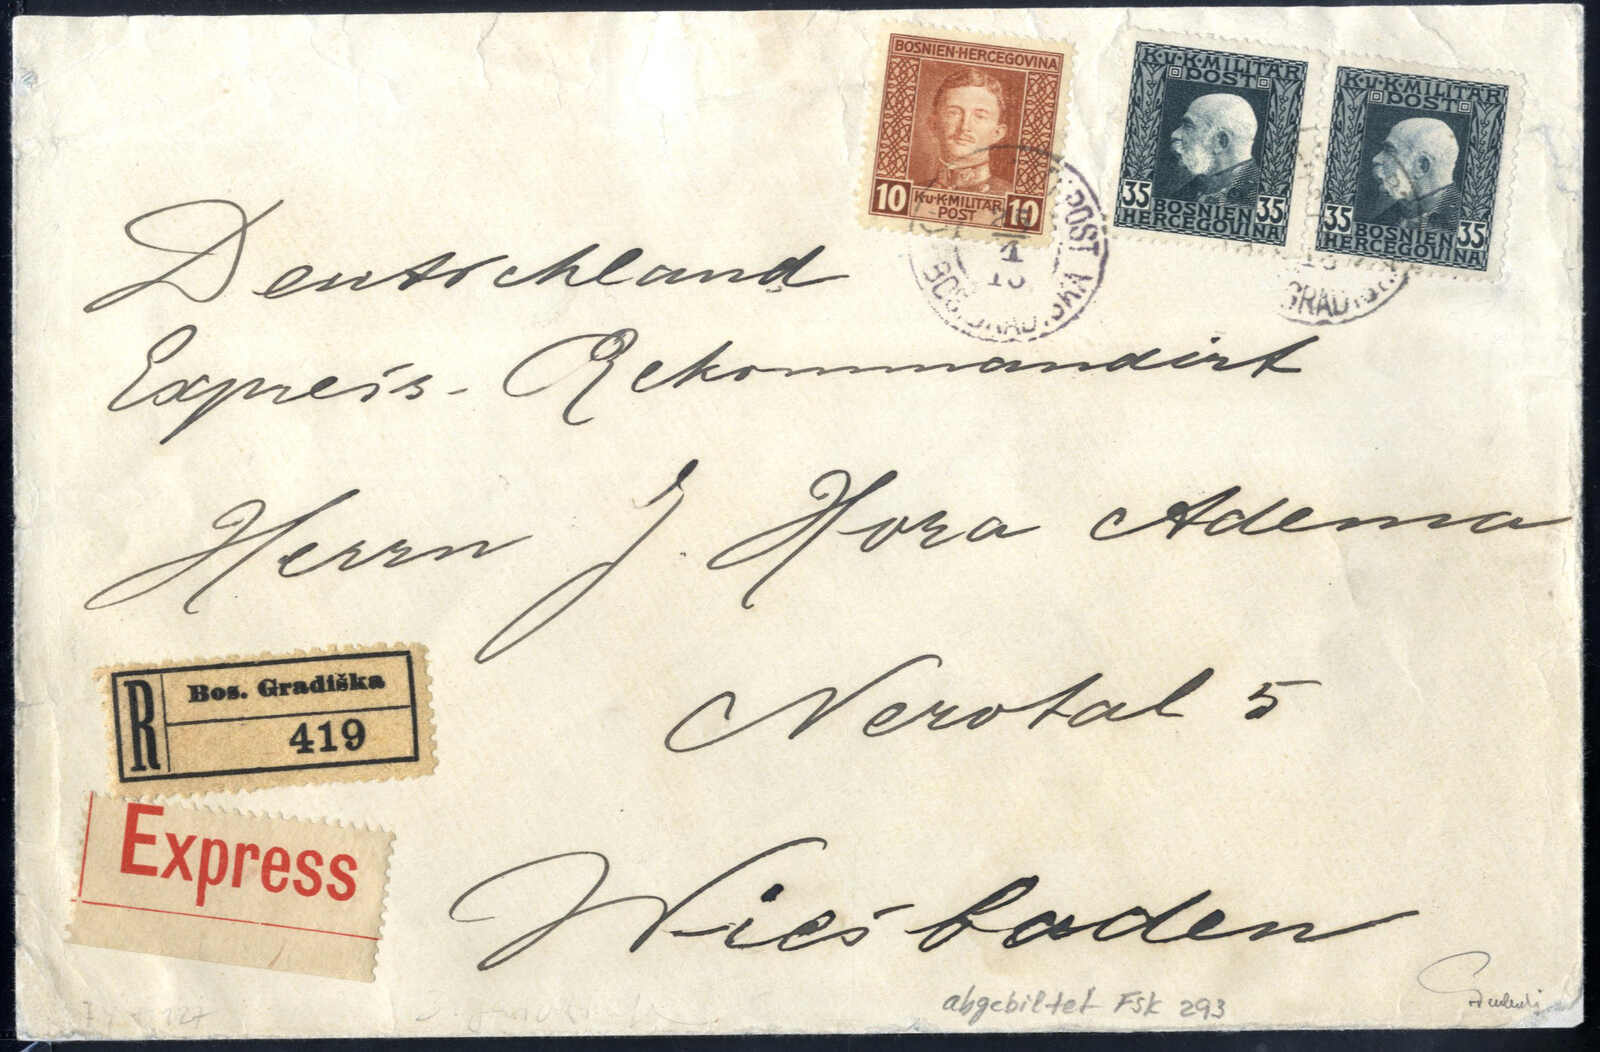 BOSNIEN-HERCEGOVINA
10 K.u.K.MILITÄR POST 10
K.u.K.MILITÄR
POST
35 BOSNIEN 35
HERCEGOVINA
K.u.K.MILITÄR
POST
35 BOSNIEN 35
HERCEGOVINA
POST
BOS. GRADISKA
GRADIS
Deutschland
Express - Rekommandirt
Herrn J. Hora Adema
Nerotal 5
Wiesbaden
R Bos. Gradiška
419
Express
abgebiltet FSK 293